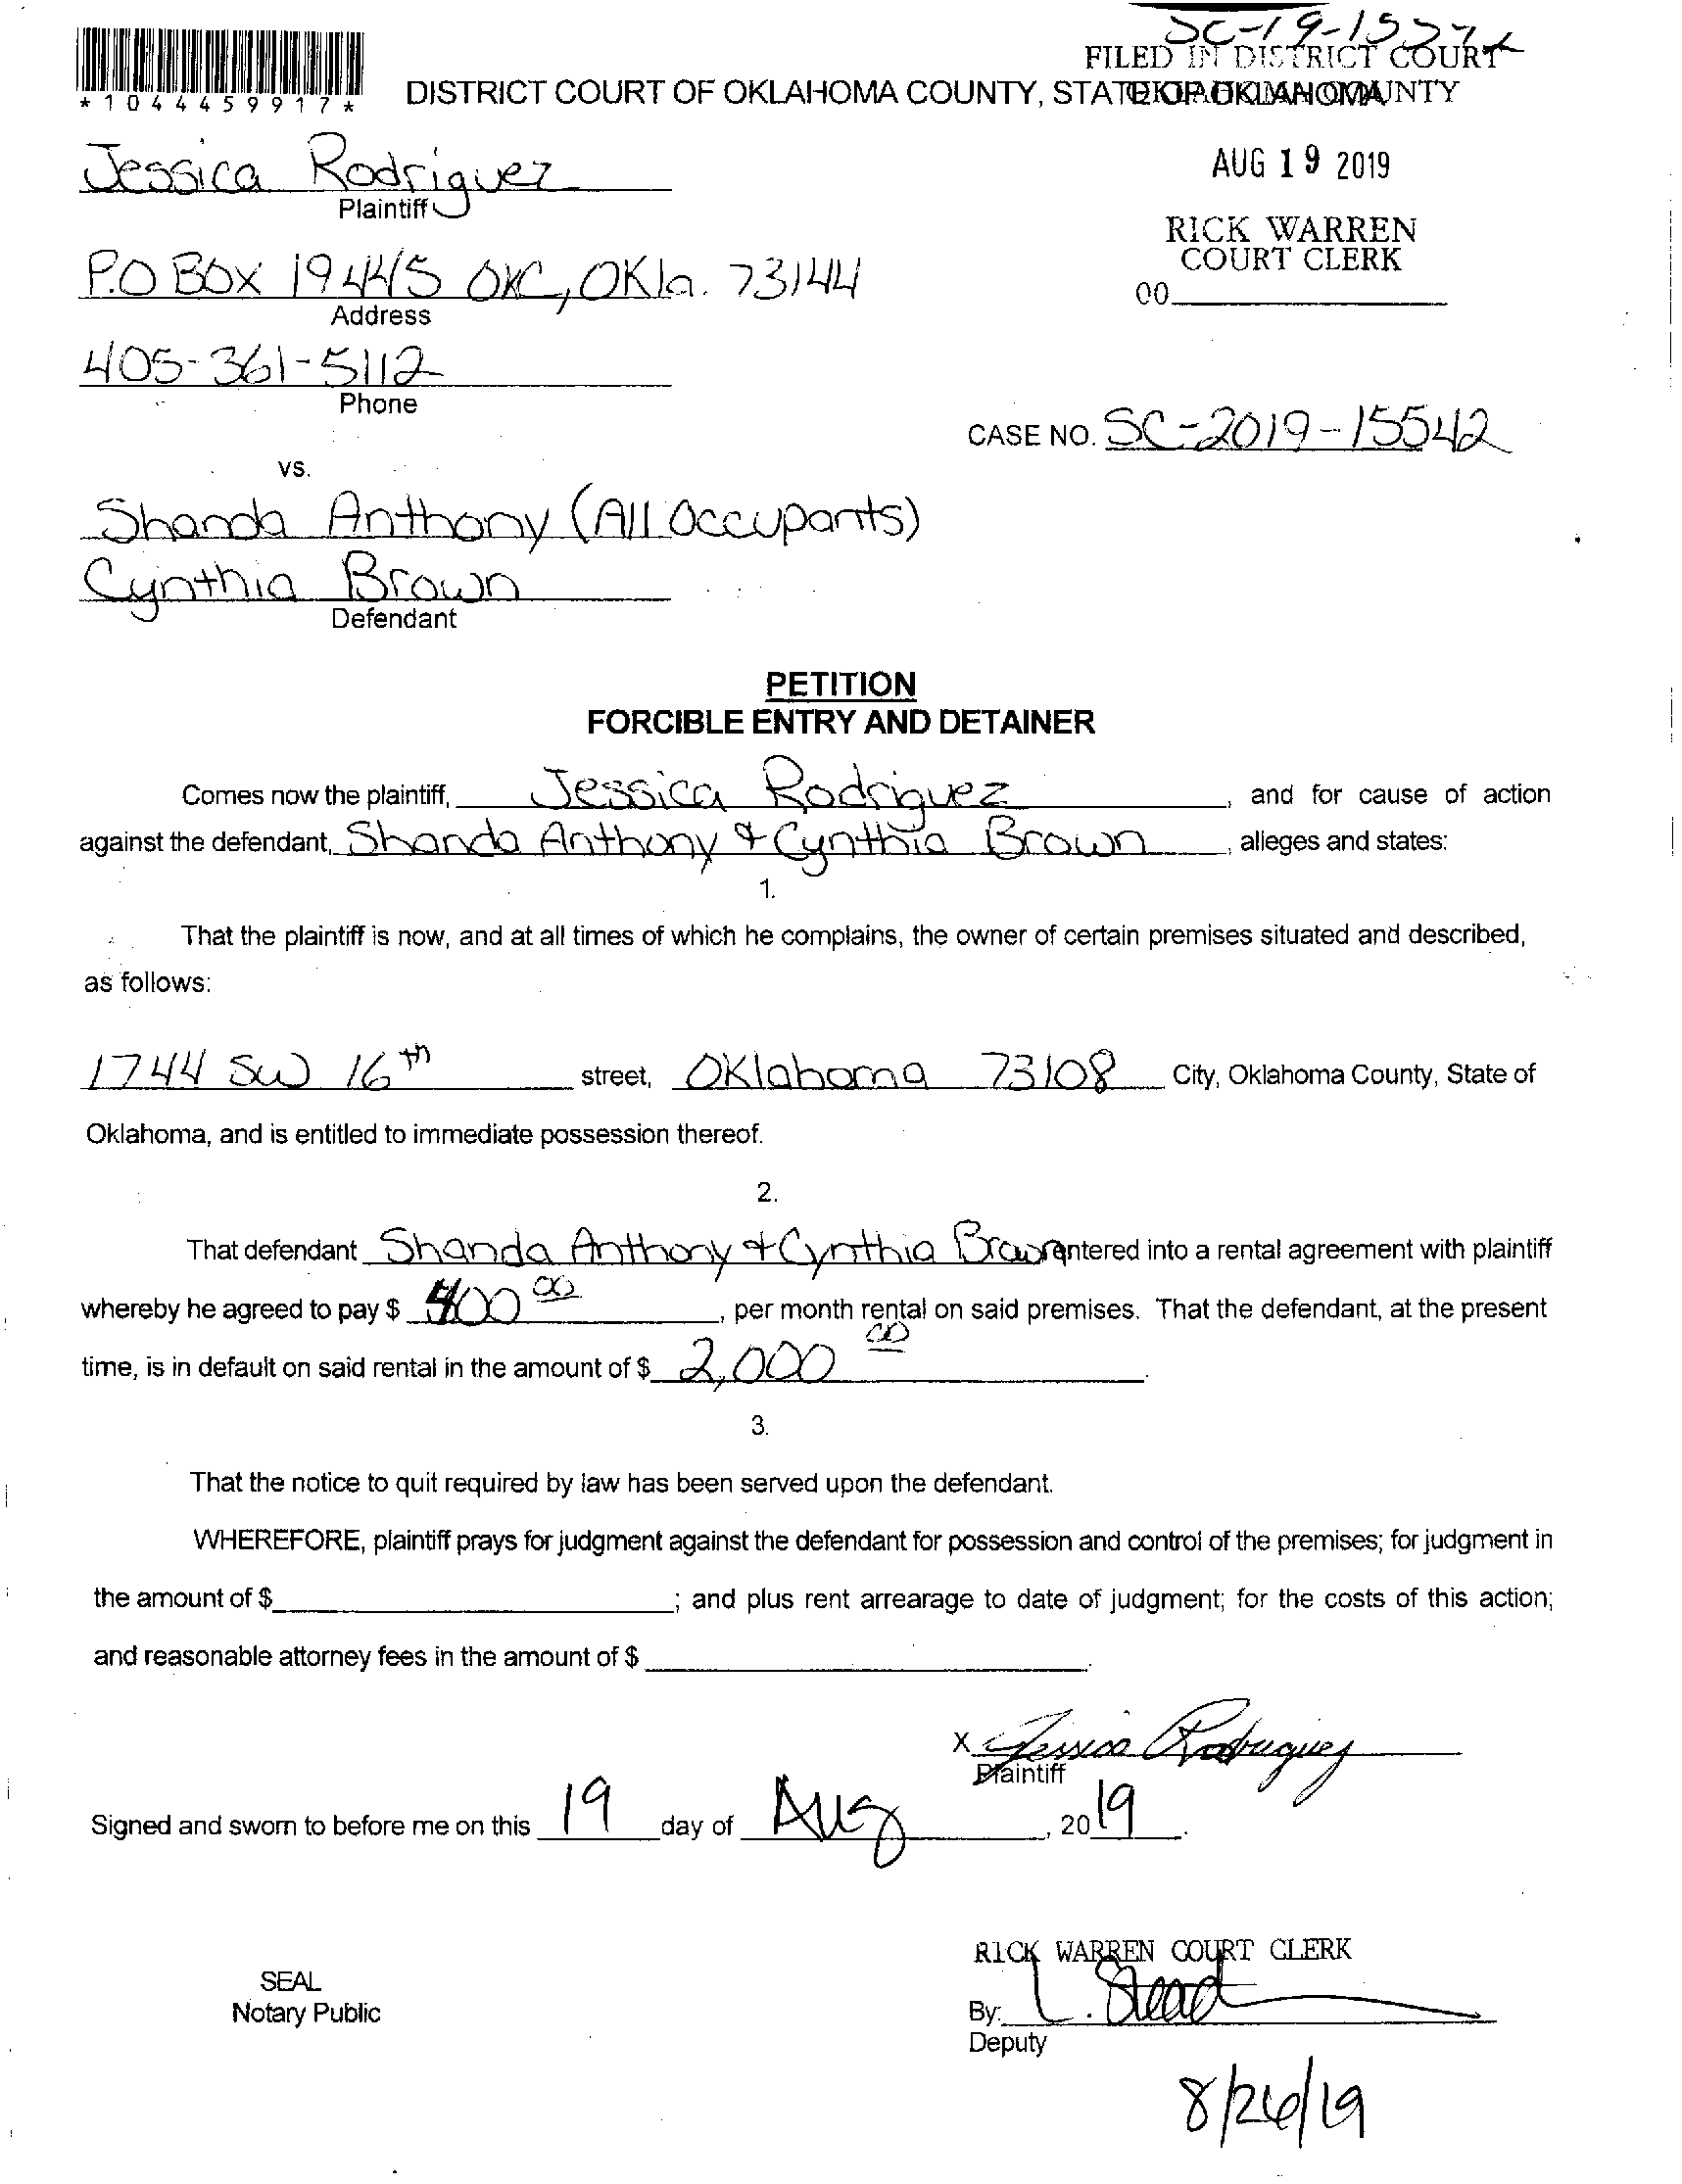 FILED IN DISTRICT COURT
*1044459917*
DISTRICT COURT OF OKLAHOMA COUNTY, STATE OF OKLAHOMA
OKLAHOMA COUNTY
Jessica Rodriguez
Plaintiff
AUG 19 2019
RICK WARREN
COURT CLERK
P.O BOX 19445 OKC, OKla. 73144
Address
00
405-361-5112
Phone
CASE NO. SC-2019-15542
vs.
Shanda Anthony (All Occupants)
Cynthia Brown
Defendant
PETITION
FORCIBLE ENTRY AND DETAINER
Comes now the plaintiff, Jessica Rodriguez, and for cause of action
against the defendant, Shanda Anthony & Cynthia Brown, alleges and states:
1.
That the plaintiff is now, and at all times of which he complains, the owner of certain premises situated and described,
as follows:
1744 SW 16th street, Oklahoma 73108 City, Oklahoma County, State of
Oklahoma, and is entitled to immediate possession thereof.
2.
That defendant Shanda Anthony & Cynthia Brown entered into a rental agreement with plaintiff
whereby he agreed to pay $ 400 00, per month rental on said premises. That the defendant, at the present
time, is in default on said rental in the amount of $ 2,000 00.
3.
That the notice to quit required by law has been served upon the defendant.
WHEREFORE, plaintiff prays for judgment against the defendant for possession and control of the premises; for judgment in
the amount of $; and plus rent arrearage to date of judgment; for the costs of this action;
and reasonable attorney fees in the amount of $.
X Jessica Rodriguez
Plaintiff
Signed and sworn to before me on this 19 day of Aug, 2019.
RICK WARREN COURT CLERK
SEAL
Notary Public
By: L. Stead
Deputy
8/26/19